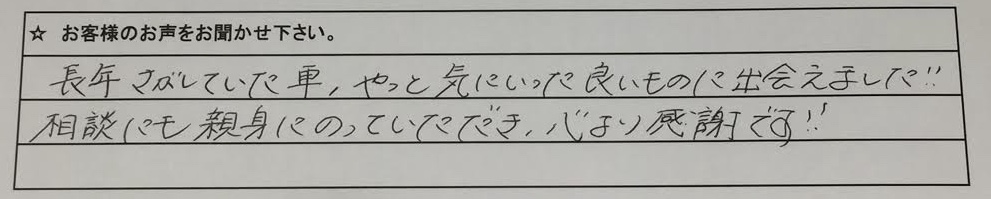 ☆ お客様のお声をお聞かせ下さい。
長年さがしていた車、やっと気にいった良いものに出会えました!!
相談にも親身にのっていただき、心より感謝です!!